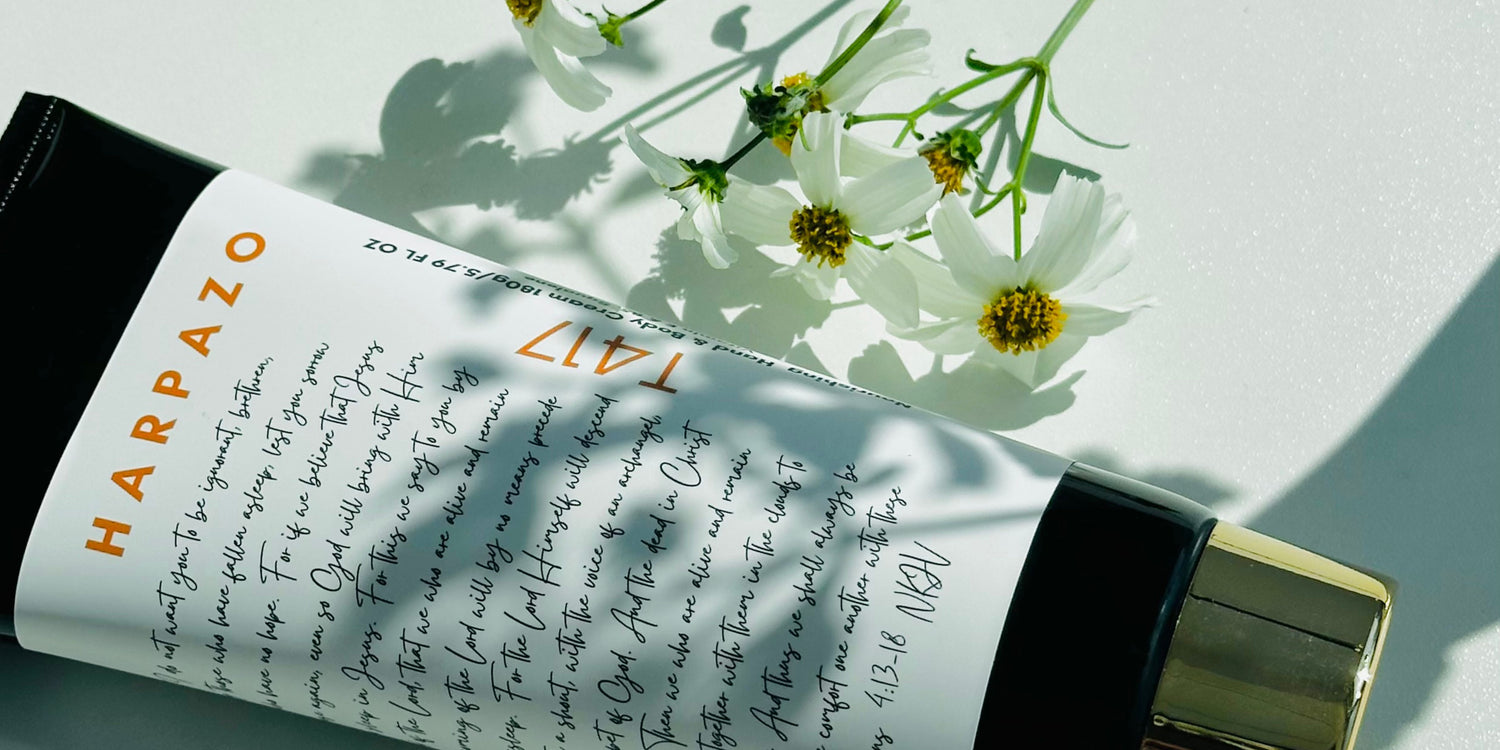 HARPAZO
do not want you to be ignorant, brethren,
who have fallen asleep, lest you sorrow
have no hope. For if we believe that Jesus
again, even so God will bring with Him
in Jesus. For this we say to you by
the Lord, that we who are alive and remain
of the Lord will by no means precede
For the Lord Himself will descend
a shout, with the voice of an archangel,
of God. And the dead in Christ
Then we who are alive and remain
together with them in the clouds to
And thus we shall always be
comfort one another with these
4:13-18 NKJV
T417
Hand & Body Cream 180g/5.79 FL OZ